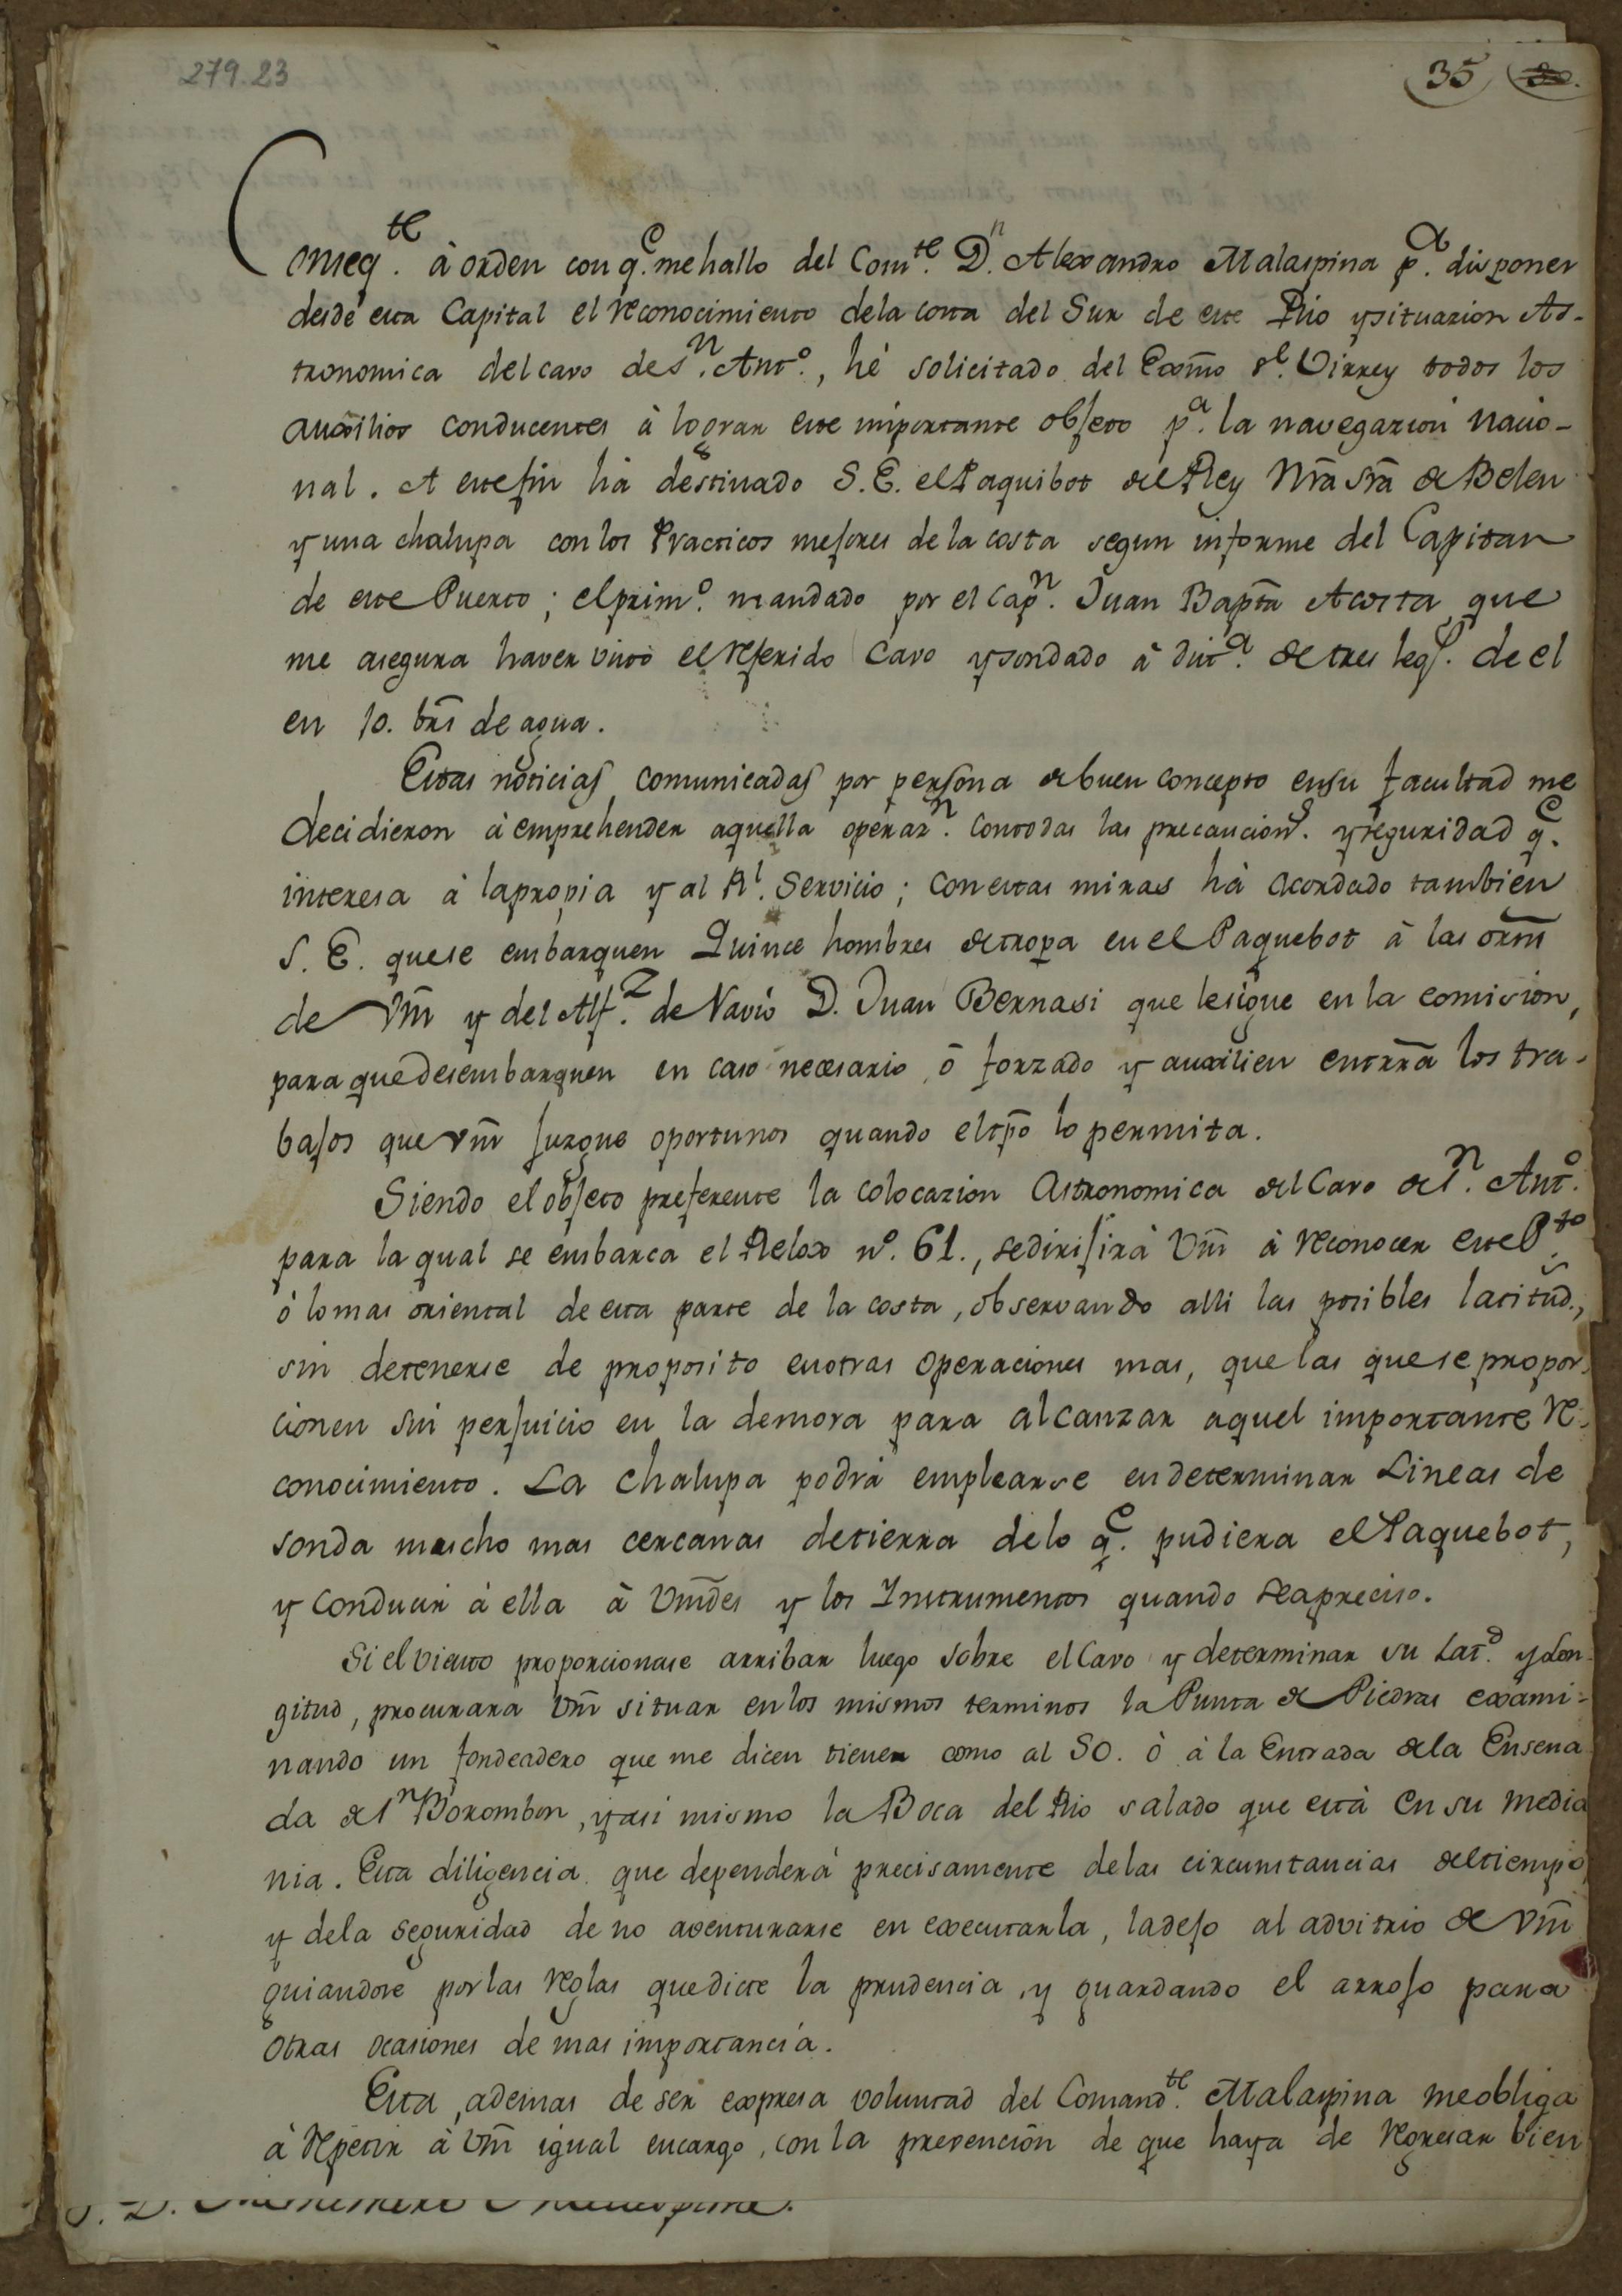 279.23
35 30.
Conseq.te à orden con q.e me hallo del Com.te D.n Alexandro Malaspina p.a disponer
desde esta Capital el reconocimiento dela costa del Sur de este Rio y situazion As-
tronomica del cavo de S.n Ant.o, hé solicitado del Exmo S.r Virrey todos los
auxilios conducentes à lograr este importante objeto p.a la navegazion nacio-
nal. A este fin hà destinado S.E. el Paquibot del Rey Nrã Srã de Belen
y una chalupa con los Practicos mejores de la costa segun informe del Capitan
de este Puerto; el prim.o mandado por el Cap.n Juan Baptã Acosta que
me asegura haver visto el referido Cavo y sondado à dist.a de tres leg.s de el
en 10. brs de agua.
Estas noticias comunicadas por persona de buen concepto en su facultad me
decidieron à emprehender aquella operaz.n con todas las precaucion.s y seguridad q.e
interesa à la propia y al R.l Servicio; con estas miras hà acordado tambien
S.E. que se embarquen Quince hombres de tropa en el Paquebot à las ornš
de Vm̃ y del Alf.z de Navio D. Juan Bernasi que le sigue en la comision,
para que desembarquen en caso necesario ó forzado y auxilien en trrã los tra-
bajos que vm̃ juzgue oportunos quando el tpõ lo permita.
Siendo el objeto preferente la colocazion Astronomica del Cavo de S.n Ant.o
para la qual se embarca el Relox nº. 61., se dirijirà Vm̃ à reconocer este P.to
ó lo mas oriental de esta parte de la costa, observando alli las posibles latitud.s,
sin detenerse de proposito en otras operaciones mas, que las que se propor-
cionen sin perjuicio en la demora para alcanzar aquel importante re-
conocimiento. La chalupa podrà emplearse en determinar Lineas de
sonda mucho mas cercanas de tierra de lo q.e pudiera el Paquebot,
y conducir à ella à Vm̃des y los Instrumentos quando sea preciso.
Si el viento proporcionase arribar luego sobre el Cavo y determinar su Lat.d y Lon-
gitud, procurara Vm̃ situar en los mismos terminos la Punta de Piedras exami-
nando un fondeadero que me dicen tienen como al SO. ò à la Entrada de la Ensena
da de S.n Borombon, y asi mismo la Boca del Rio salado que està en su media
nia. Esta diligencia que dependerà precisamente de las circunstancias del tiempo,
y dela seguridad de no aventurarse en executarla, la dejo al advitrio de Vm̃
guiandose por las reglas que dicte la prudencia, y guardando el arrojo para
otras ocasiones de mas importancia.
Esta, ademas de ser expresa voluntad del Comand.te Malaspina me obliga
à repetir à Vm̃ igual encargo, con la prevención de que haya de regresar bien